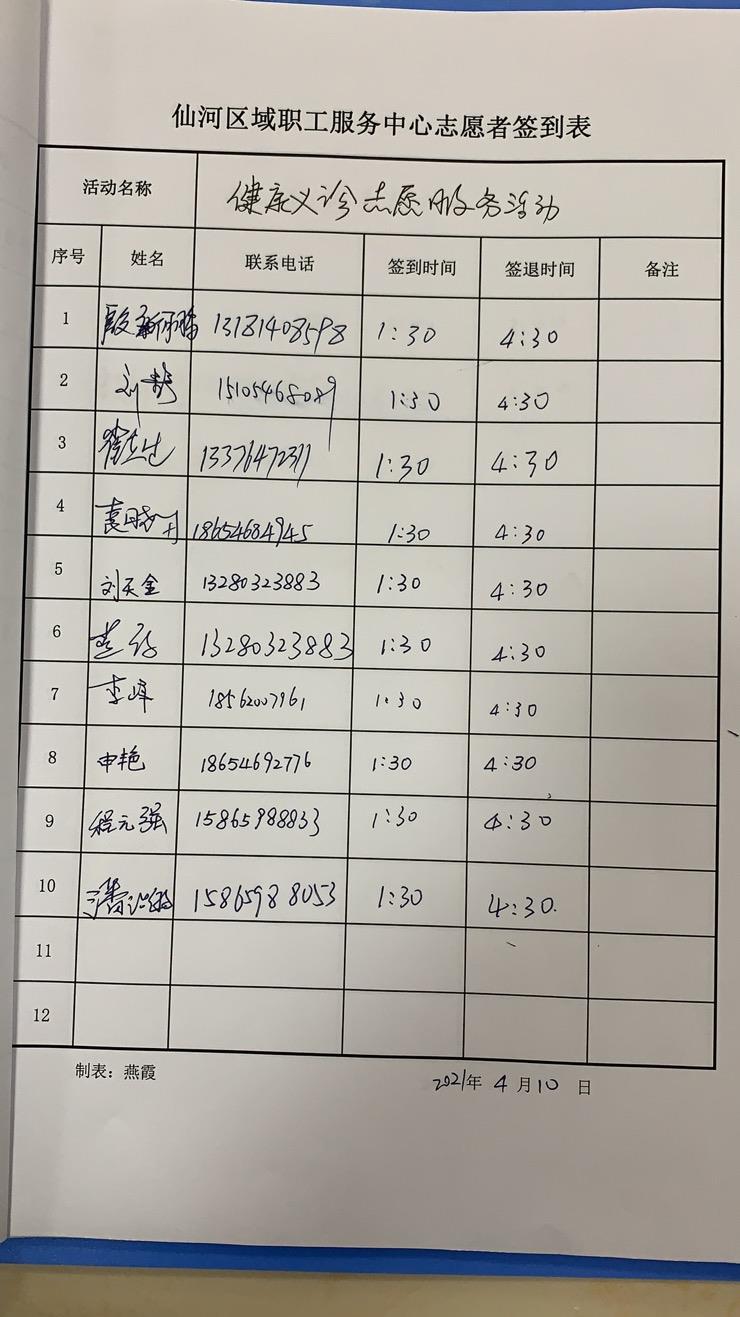 仙河区域职工服务中心志愿者签到表
活动名称 健康义诊志愿服务活动
序号 姓名 联系电话 签到时间 签退时间 备注
1 13181408598 1:30 4:30
2 刘 15105468089 1:30 4:30
3 13376472311 1:30 4:30
4 袁 18654684945 1:30 4:30
5 刘天金 13280323883 1:30 4:30
6 13280323883 1:30 4:30
7 李峰 18562007961 1:30 4:30
8 申艳 18654692776 1:30 4:30
9 程元强 15865988833 1:30 4:30
10 15865988053 1:30 4:30
11
12
制表：燕霞 2021年 4 月 10 日